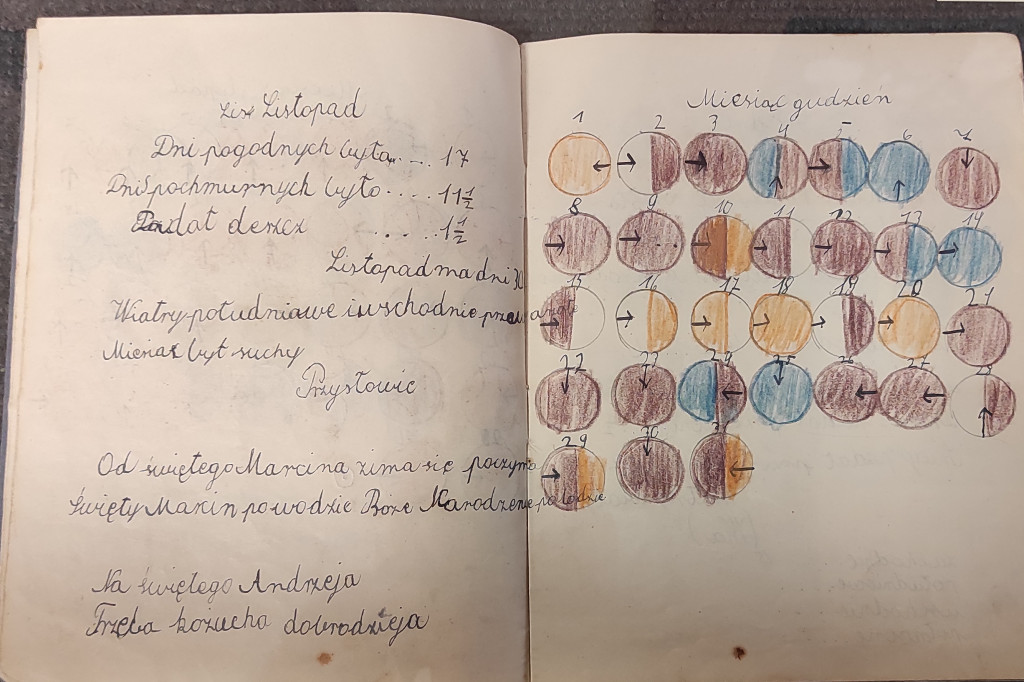 List Listopad
Dni pogodnych było.. .... 17
Dni pochmurnych było .... 11 1/2
Padał deszcz ..... 1 1/2
Listopad ma dni 30
Wiatry południowe i wschodnie
Miesiąc był suchy
Przysłowie
Od świętego Marcina zima się poczyna
Święty Marcin po wodzie Boże Narodzenie po lodzie
Na świętego Andrzeja
Trzeba kożucha dobrodzieja
Miesiąc gudzień
1 2 3 4 5 6 7
8 9 10 11 12 13 14
15 16 17 18 19 20 21
22 23 24 25 26 27 28
29 30 31